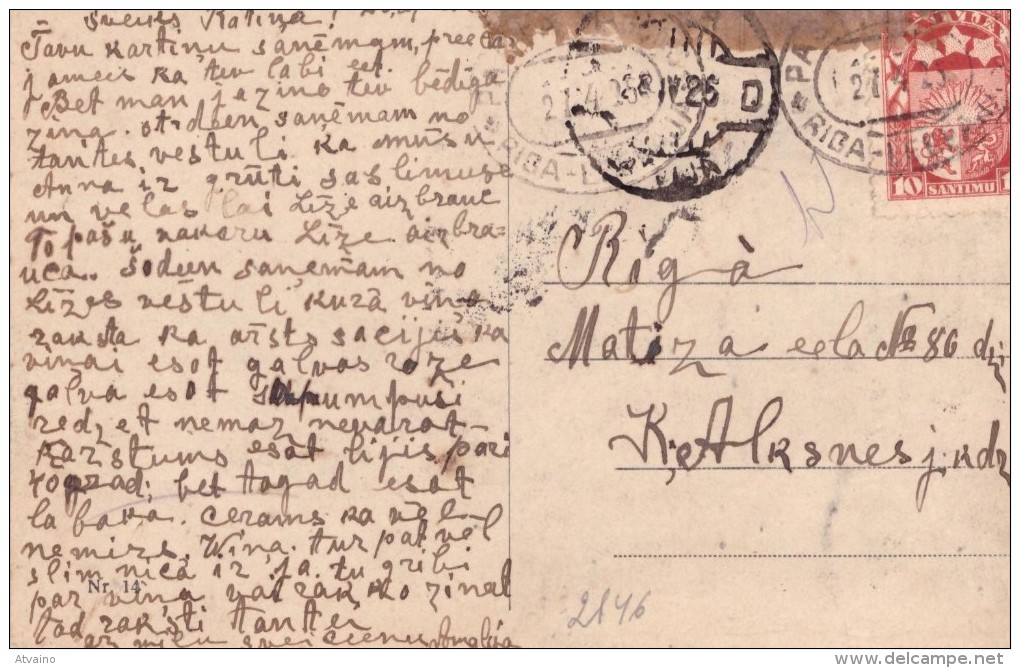 Sveiks Katiņa!
Tavu kartiņu saņēmam, priecā
jamies ka tev labi iet
Bet man jāziņo tev bēdīga
ziņa. otrdien saņēmam no
tantes vēstuli ka mūsu
Anna ir grūti saslimuse
un vēlas lai Līze aizbrauc
To pašu vakaru Līze aizbra-
uca. Šodien saņēmam no
Līzes vēstuli, kurā viņa
raksta ka ārsts sacijis ka
viņai esot galvas roze
galva esot sapumpusi
redzet nemaz nevarot
Karstums esot bijis pāri
40 grad; bet tagad esot
labāka. Cerams ka vēl
nemirs. Viņa tur pat vēl
slimnīcā ir, ja tu gribi
par viņa vairāk ko zinat
tad raksti tantei
ar mīļu sveicienu Amalija
Nr. 14
LATVIJA
10 SANTIMU 1
RIGA
IV 26
D
Rīgā
Matiza ielā № 86 dz
K. Alksnes j. kdz
2846
Atvaino
delcampe.net